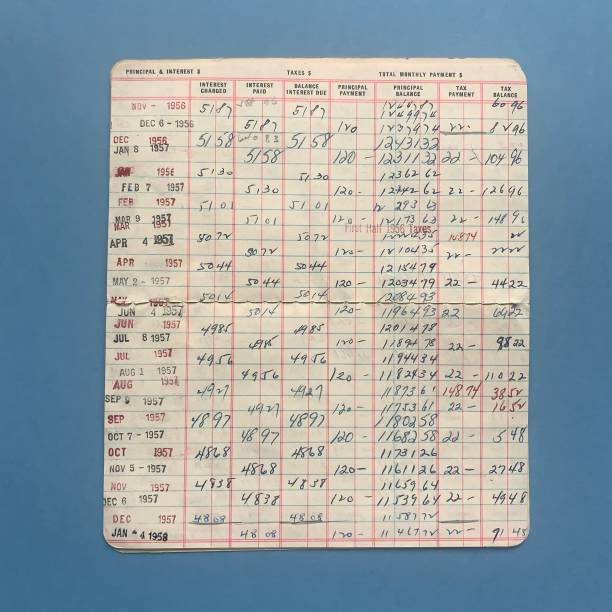 PRINCIPAL & INTEREST $ TAXES $ TOTAL MONTHLY PAYMENT $
INTEREST CHARGED INTEREST PAID BALANCE INTEREST DUE PRINCIPAL PAYMENT PRINCIPAL BALANCE TAX PAYMENT TAX BALANCE
NOV - 1956 5187 5187 6096
DEC 6 - 1956 5187 120 1237974 22- 8296
DEC 1956 5158 5158 1243132
JAN 8 1957 5158 120 - 1231132 22 - 10496
JAN 1956 5130 5130 1236262
FEB 7 1957 5130 120- 1224262 22 - 12696
FEB 1957 5101 5101 12 29363
MAR 9 1957 5101 120- 1217363 22- 148
MAR 1957 5072 5072 First Half 1956 Taxes 14874
APR 4 1957 5072 120- 1210435 22-
APR 1957 5044 5044 1215479
MAY 2 - 1957 5044 120- 1203479 22- 4422
MAY 1957 5014 5014 1208493
JUN 4 1957 5014 120- 1196493 22 6622
JUN 1957 4985 4985 1201478
JUL 8 1957 4985 120- 1189478 22- 8822
JUL 1957 4956 4956 1194434
AUG 1 1957 4956 120- 1182434 22- 11022
AUG 1957 4927 4927 1187361 14874 3852
SEP 1957 4927 120- 1175361 22- 1652
SEP 1957 4897 4897 1180258
OCT 7 - 1957 4897 120- 1168258 22- 548
OCT 1957 4868 4868 1173126
NOV 5 - 1957 4868 120- 1161126 22- 2748
NOV 1957 4838 4838 1165964
DEC 6 1957 4838 120- 1153964 22- 4948
DEC 1957 4808 4808 1158772
JAN 4 1958 4808 120- 1146772 22- 7148